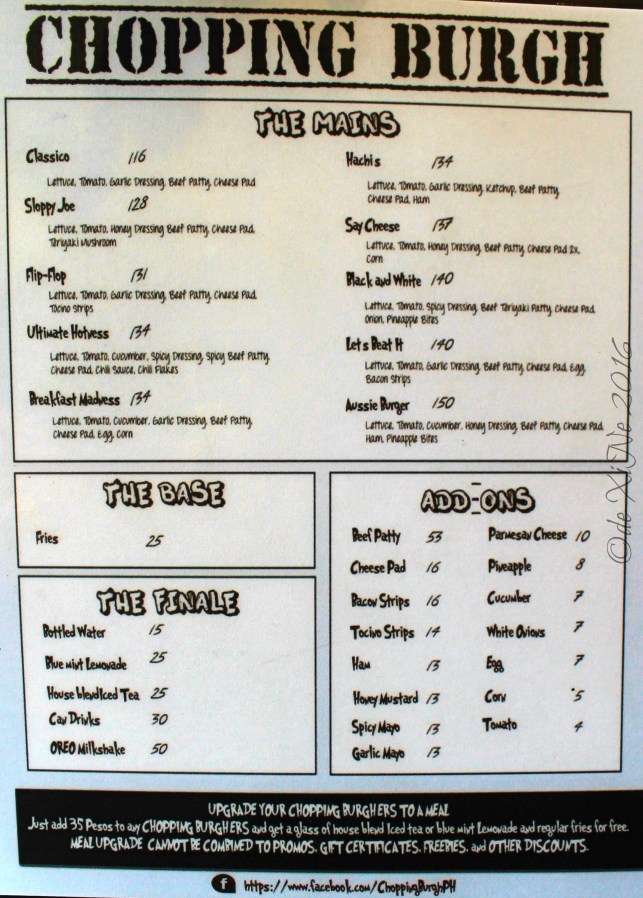 CHOPPING BURGH
THE MAINS
Classico 116
Lettuce, Tomato, Garlic Dressing, Beef Patty, Cheese Pad
Sloppy Joe 128
Lettuce, Tomato, Honey Dressing Beef Patty, Cheese Pad,
Teriyaki Mushroom
Flip-Flop 131
Lettuce, Tomato, Garlic Dressing, Beef Patty, Cheese Pad,
Tocino Strips
Ultimate Hotness 134
Lettuce, Tomato, Cucumber, Spicy Dressing, Spicy Beef Patty,
Cheese Pad, Chili Sauce, Chili Flakes
Breakfast Madness 134
Lettuce, Tomato, Cucumber, Garlic Dressing, Beef Patty,
Cheese Pad, Egg, Corn
Hachis 134
Lettuce, Tomato, Garlic Dressing, Ketchup, Beef Patty,
Cheese Pad, Ham
Say Cheese 137
Lettuce, Tomato, Honey Dressing, Beef Patty, Cheese Pad 2x,
Corn
Black and White 140
Lettuce, Tomato, Spicy Dressing, Beef Teriyaki Patty, Cheese Pad,
Onion, Pineapple Bites
Let's Beat It 140
Lettuce, Tomato, Garlic Dressing, Beef Patty, Cheese Pad, Egg,
Bacon Strips
Aussie Burger 150
Lettuce, Tomato, Cucumber, Honey Dressing, Beef Patty, Cheese Pad,
Ham, Pineapple Bites
THE BASE
Fries 25
THE FINALE
Bottled Water 15
Blue mint Lemonade 25
House blend Iced Tea 25
Can Drinks 30
OREO Milkshake 50
ADD-ONS
Beef Patty 53
Cheese Pad 16
Bacon Strips 16
Tocino Strips 14
Ham 13
Honey Mustard 13
Spicy Mayo 13
Garlic Mayo 13
Parmesan Cheese 10
Pineapple 8
Cucumber 7
White Onions 7
Egg 7
Corn 5
Tomato 4
UPGRADE YOUR CHOPPING BURGHERS TO A MEAL
Just add 35 Pesos to any CHOPPING BURGHERS and get a glass of house blend Iced tea or blue mint Lemonade and regular fries for free.
MEAL UPGRADE CANNOT BE COMBINED TO PROMOS, GIFT CERTIFICATES, FREEBIES, and OTHER DISCOUNTS.
f https://www.facebook.com/ChoppingBurghPH
©de XiiNe 2016